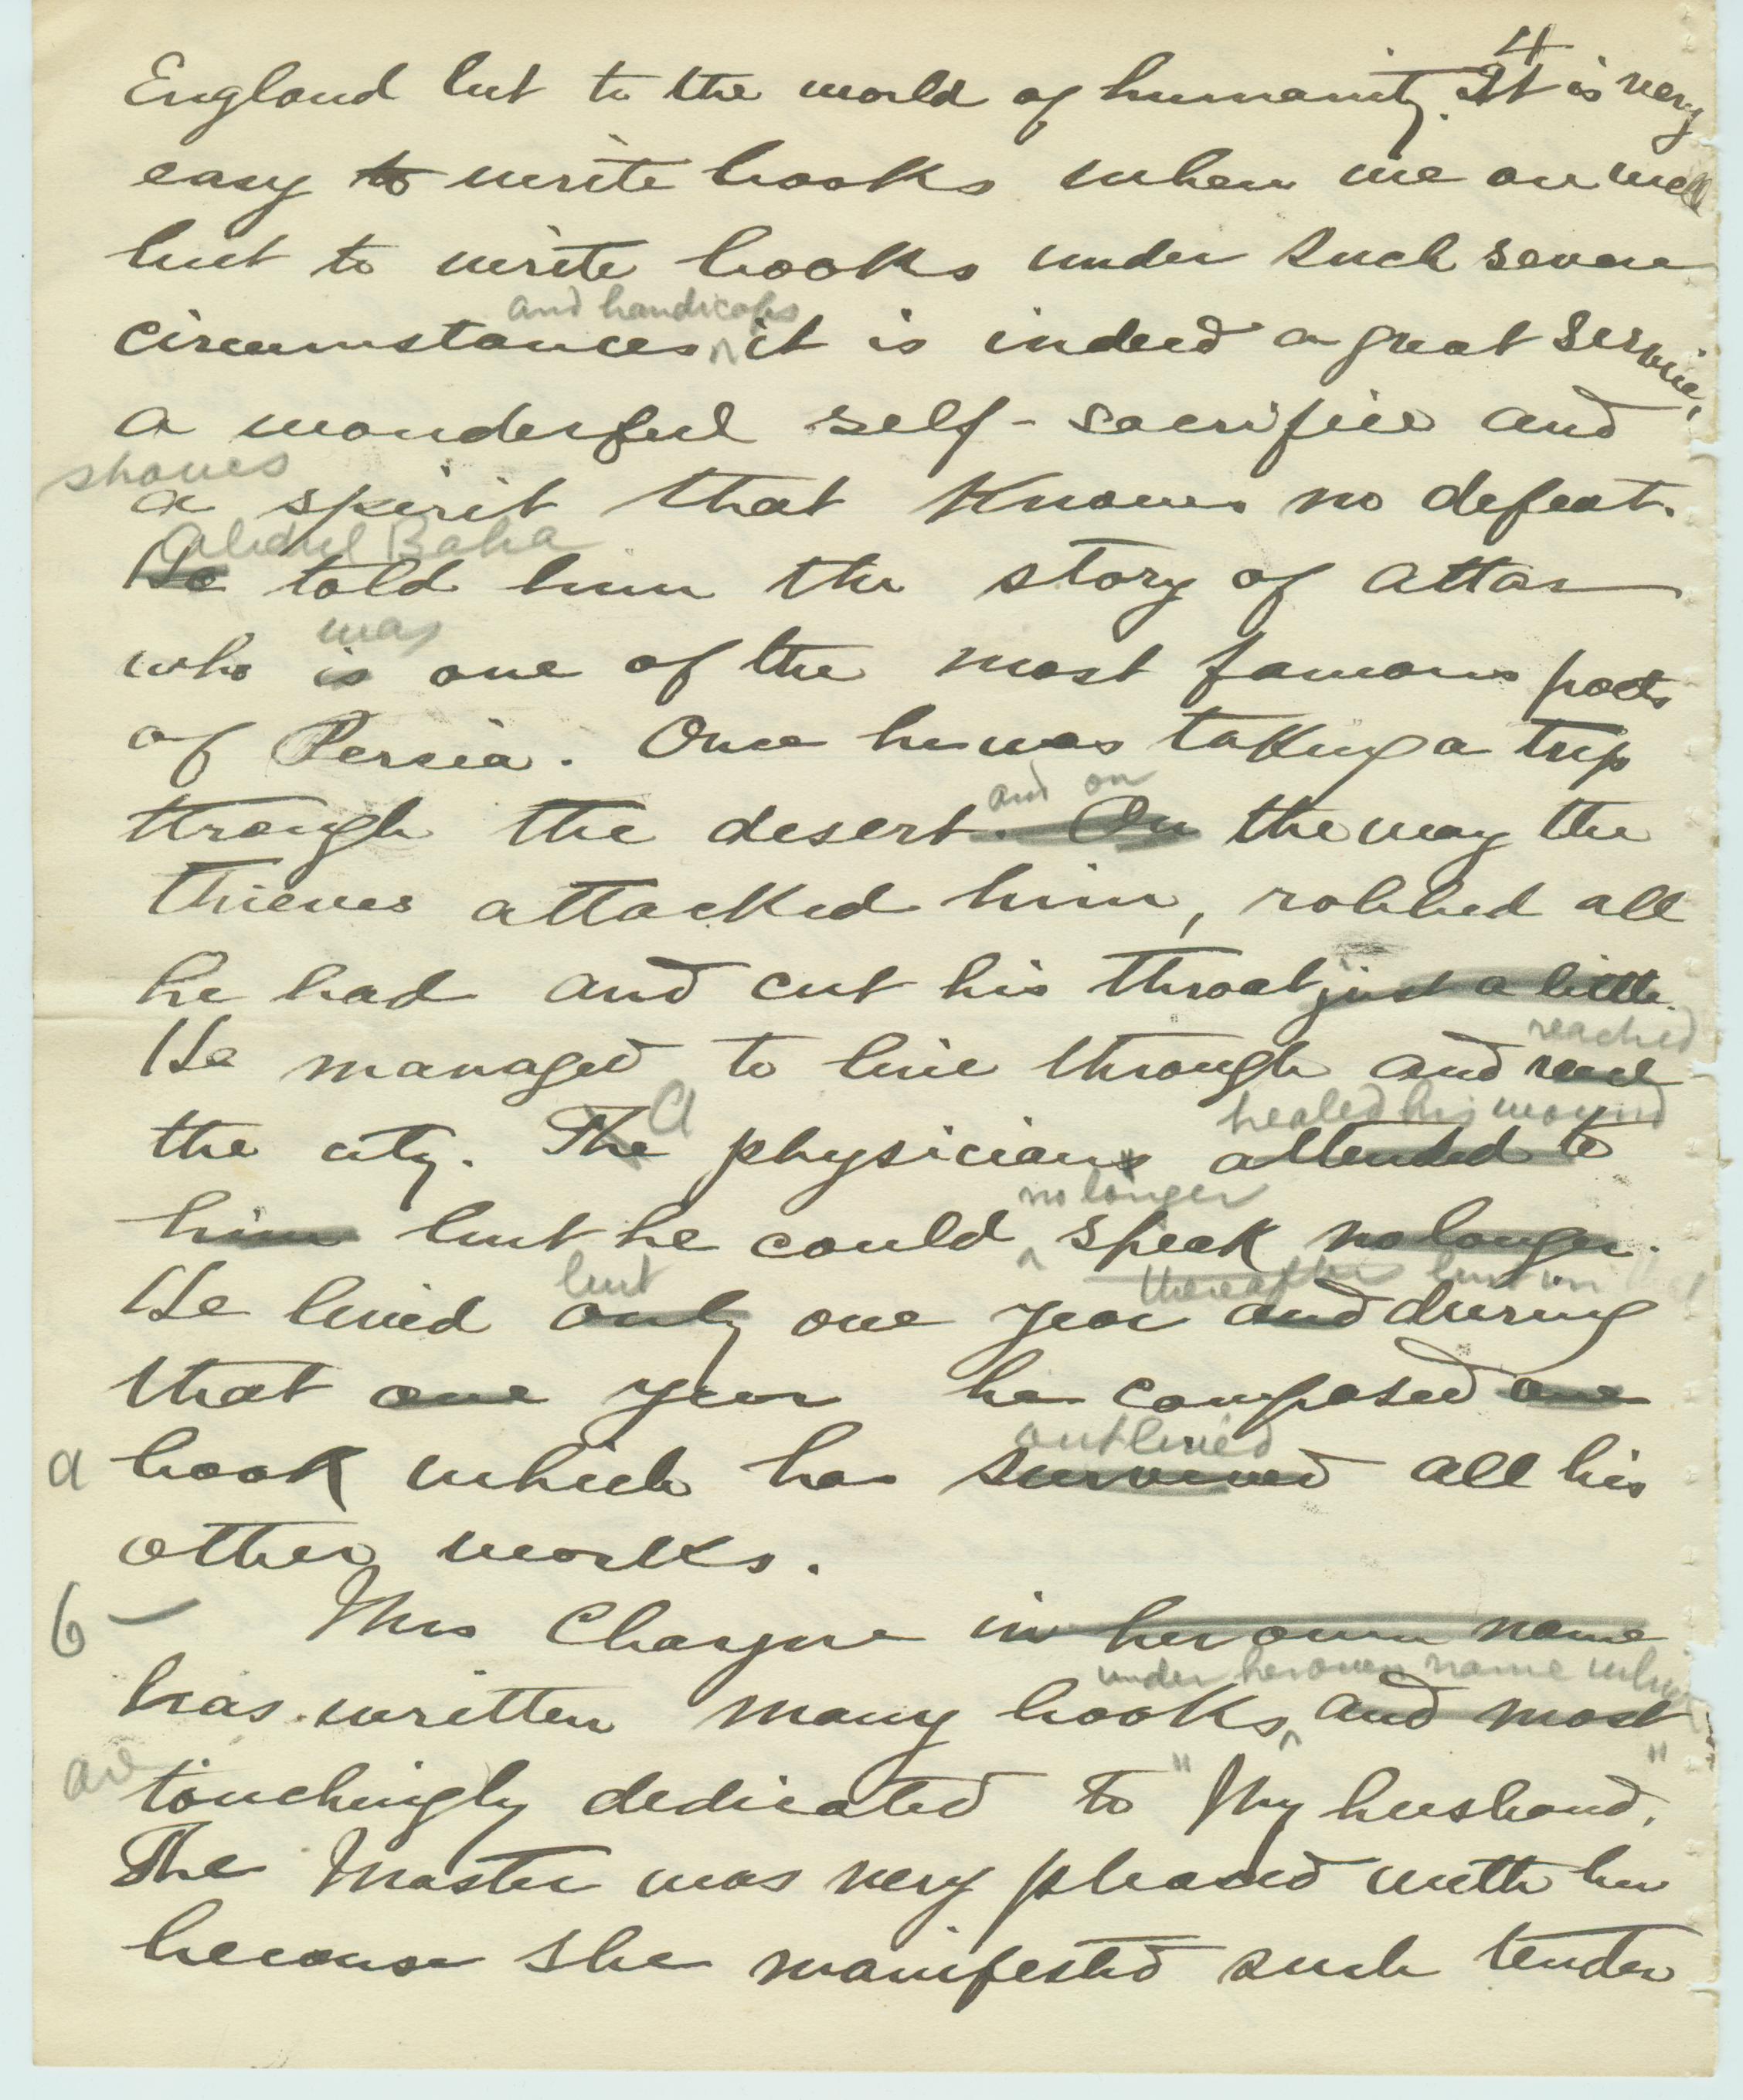 4
England but to the world of humanity. It is very
easy to write books when we are well
but to write books under such severe
and handicaps
circumstances ^ it is indeed a great service,
a wonderful self-sacrifice and
shows
a spirit that knows no defeat.
Abdul Baha
He told him the story of Attar
was
who is one of the most famous poets
of Persia. Once he was taking a trip
and on
through the desert. On the way the
thieves attacked him, robbed all
he had and cut his throat just a little.
reached
He managed to live through and reach
A healed his wound
the city. The physicians attended to
no longer
him but he could ^ speak no longer.
but thereafter but in
He lived only one year and during
that one year he composed one
outlived
a book which has survived all his
other works.
6 — Mrs Cheyne in her own name
under her own name which
has written many books, ^ and most
are touchingly dedicated to "My husband."
The Master was very pleased with her
because she manifested such tender